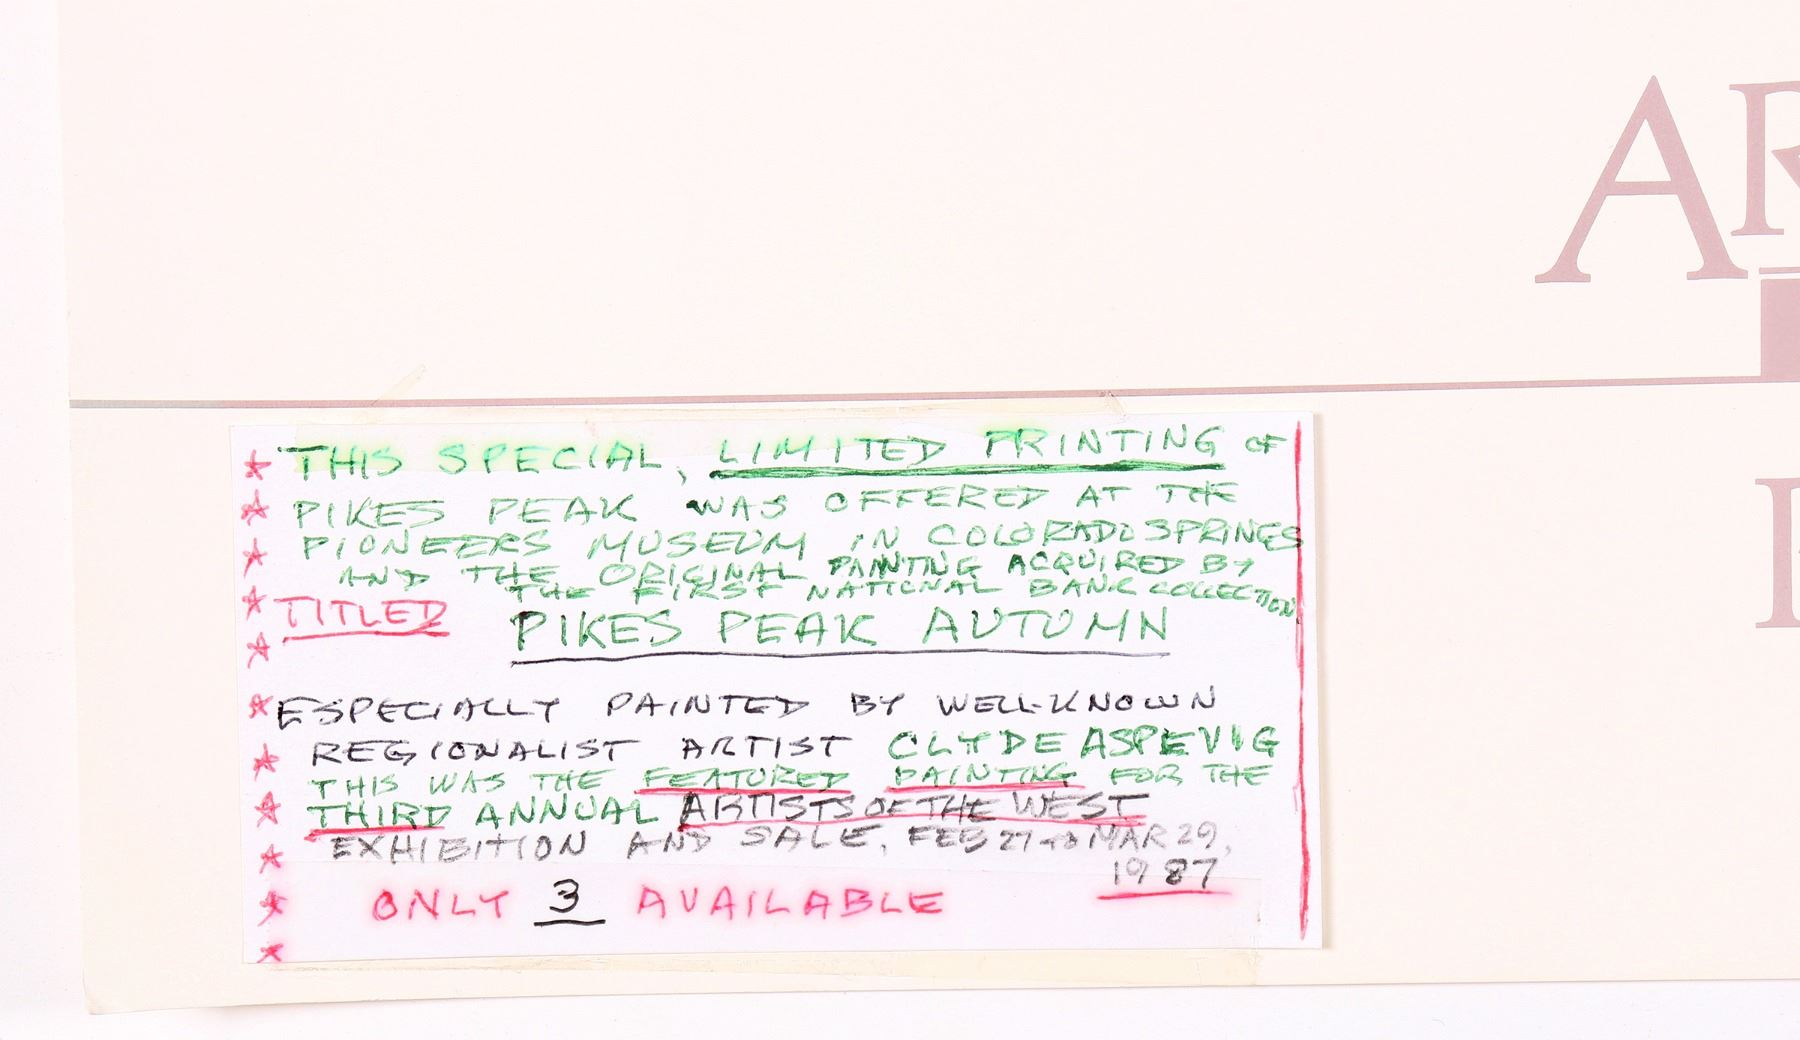 AR
THIS SPECIAL, LIMITED PRINTING OF
PIKES PEAK WAS OFFERED AT THE
PIONEERS MUSEUM IN COLORADO SPRINGS
AND THE ORIGINAL PAINTING ACQUIRED BY
THE FIRST NATIONAL BANK COLLECTION
TITLED PIKES PEAK AUTUMN
ESPECIALLY PAINTED BY WELL-KNOWN
REGIONALIST ARTIST CLYDE ASPEVIG
THIS WAS THE FEATURED PAINTING FOR THE
THIRD ANNUAL ARTISTS OF THE WEST
EXHIBITION AND SALE, FEB 27 to MAR 29,
1987
ONLY 3 AVAILABLE